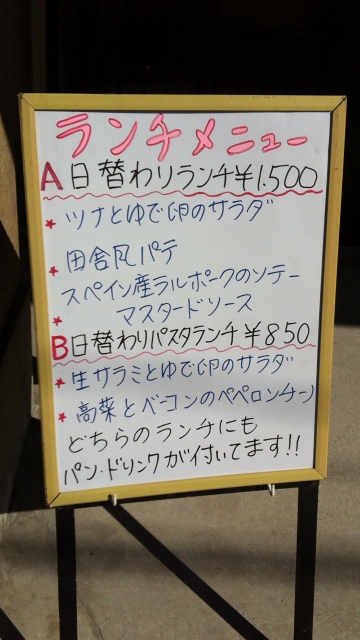 ランチメニュー
A日替わりランチ¥1.500
★ツナとゆで卵のサラダ
★田舎風パテ
スペイン産ラルポークのソテー
★マスタードソース
B日替わりパスタランチ¥850
★生サラミとゆで卵のサラダ
★高菜とベーコンのペペロンチーノ
どちらのランチにも
パン・ドリンクが付いてます!!